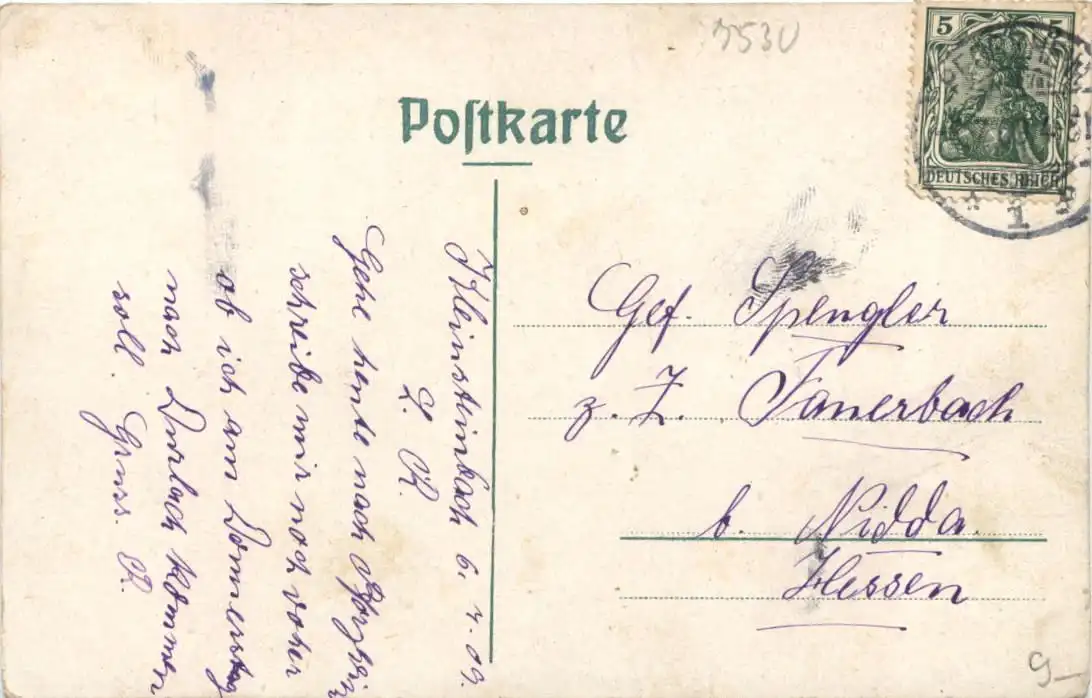 7530
Postkarte
5 5
DEUTSCHES REICH
1
Kleinsteinbach 6. 4. 09.
L. R.
Gehe heute nach Pforzheim
schreibe mir noch vorher
ob ich am Donnerstag
nach Durlach kommen
soll. Gruss. R.
Gef. Spengler
z. Z. Fauerbach
b. Nidda.
Hessen